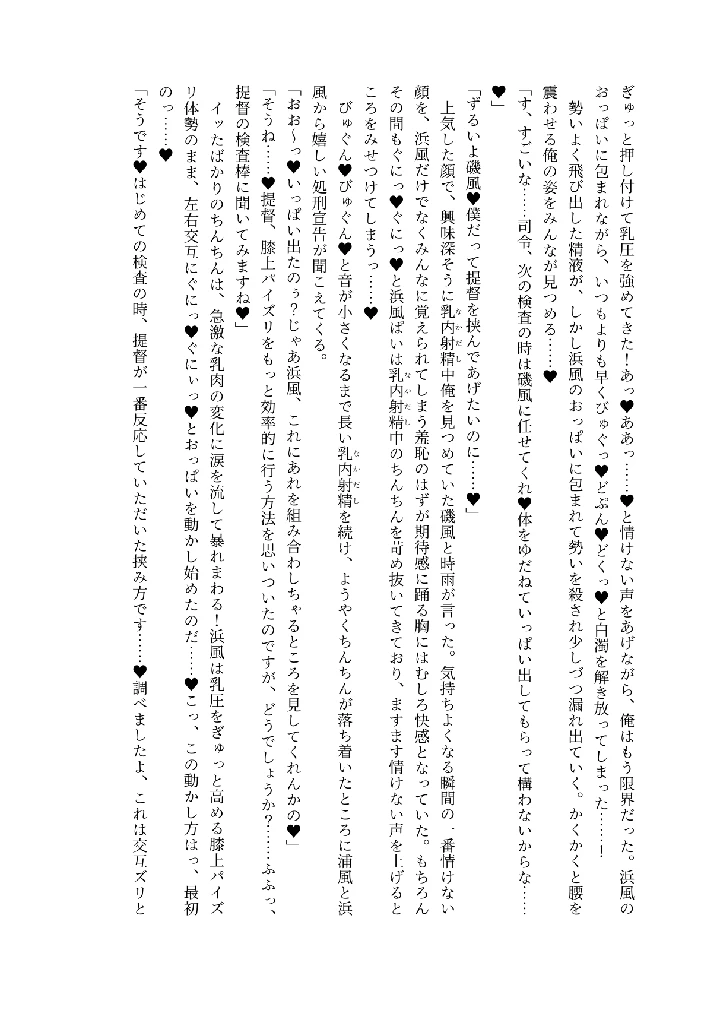 ぎゅっと押し付けて乳圧を強めてきた！あっ♥ああっ……♥と情けない声をあげながら、俺はもう限界だった。浜風の
おっぱいに包まれながら、いつもよりも早くびゅぐっ♥どぷん♥どくっ♥と白濁を解き放ってしまった……！
勢いよく飛び出した精液が、しかし浜風のおっぱいに包まれて勢いを殺され少しづつ漏れ出ていく。かくかくと腰を
震わせる俺の姿をみんなが見つめる……♥
「す、すごいな……司令、次の検査の時は磯風に任せてくれ♥体をゆだねていっぱい出してもらって構わないからな……
♥」
「ずるいよ磯風♥僕だって提督を挟んであげたいのに……♥」
上気した顔で、興味深そうに乳内射精中俺を見つめていた磯風と時雨が言った。気持ちよくなる瞬間の一番情けない
顔を、浜風だけでなくみんなに覚えられてしまう羞恥のはずが期待感に踊る胸にはむしろ快感となっていた。もちろん
その間もぐにっ♥ぐにっ♥と浜風ぱいは乳内射精中のちんちんを苛め抜いてきており、ますます情けない声を上げると
ころをみせつけてしまうっ……♥
びゅぐん♥びゅぐん♥と音が小さくなるまで長い乳内射精を続け、ようやくちんちんが落ち着いたところに浦風と浜
風から嬉しい処刑宣告が聞こえてくる。
「おお～っ♥いっぱい出たのぅ？じゃあ浜風、これにあれを組み合わしちゃるところを見してくれんかの♥」
「そうね……♥提督、膝上パイズリをもっと効率的に行う方法を思いついたのですが、どうでしょうか？……ふふっ、
提督の検査棒に聞いてみますね♥」
イッたばかりのちんちんは、急激な乳肉の変化に涙を流して暴れまわる！浜風は乳圧をぎゅっと高める膝上パイズ
リ体勢のまま、左右交互にぐにっ♥ぐにぃっ♥とおっぱいを動かし始めたのだ……♥こっ、この動かし方はっ、最初
のっ……♥
「そうです♥はじめての検査の時、提督が一番反応していただいた挟み方です……♥調べましたよ、これは交互ズリと